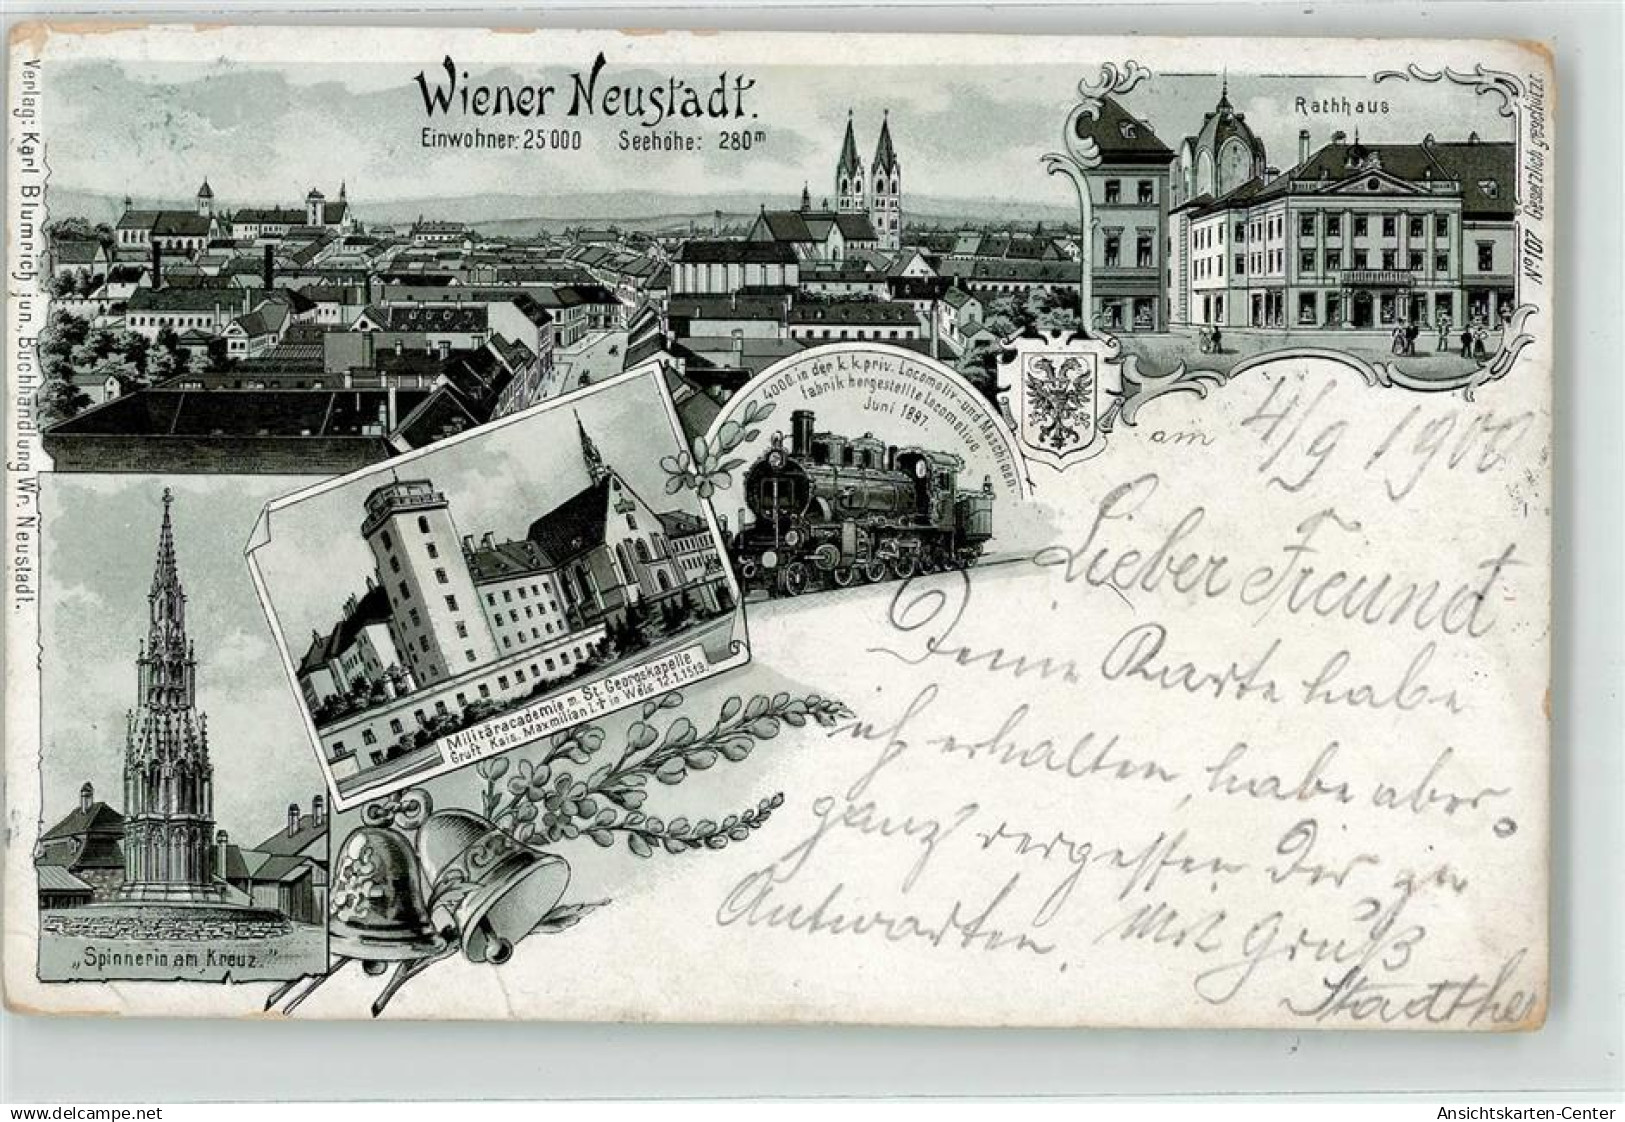 Wiener Neustadt.
Einwohner: 25000 Seehöhe: 280m
Rathhaus
No 2017 Gesetzlich geschützt.
Verlag: Karl Blumrich jun., Buchhandlung Wr. Neustadt.
4000. in der k. k. priv. Locomotiv- und Maschinen-
fabrik hergestellte Locomotive
Juni 1897.
Militäracademie m. St. Georgskapelle
Gruft Kais. Maxmilian I. † in Wels 12.1.1519.
„Spinnerin am Kreuz."
am 4/9 1900
Lieber Freund
Deine Karte habe
ich erhalten, habe aber
ganz vergessen Dir zu
Antworten. Mit Gruß
AK-ID: 11512392
Ansichtskarten-Center